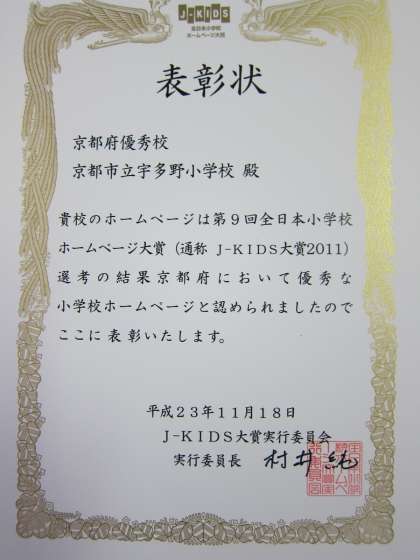 J-KIDS
全日本小学校
ホームページ大賞
表彰状
京都府優秀校
京都市立宇多野小学校 殿
貴校のホームページは第9回全日本小学校
ホームページ大賞（通称 J-KIDS大賞2011）
選考の結果京都府において優秀な
小学校ホームページと認められましたので
ここに表彰いたします。
平成23年11月18日
J-KIDS大賞実行委員会
実行委員長 村井 純